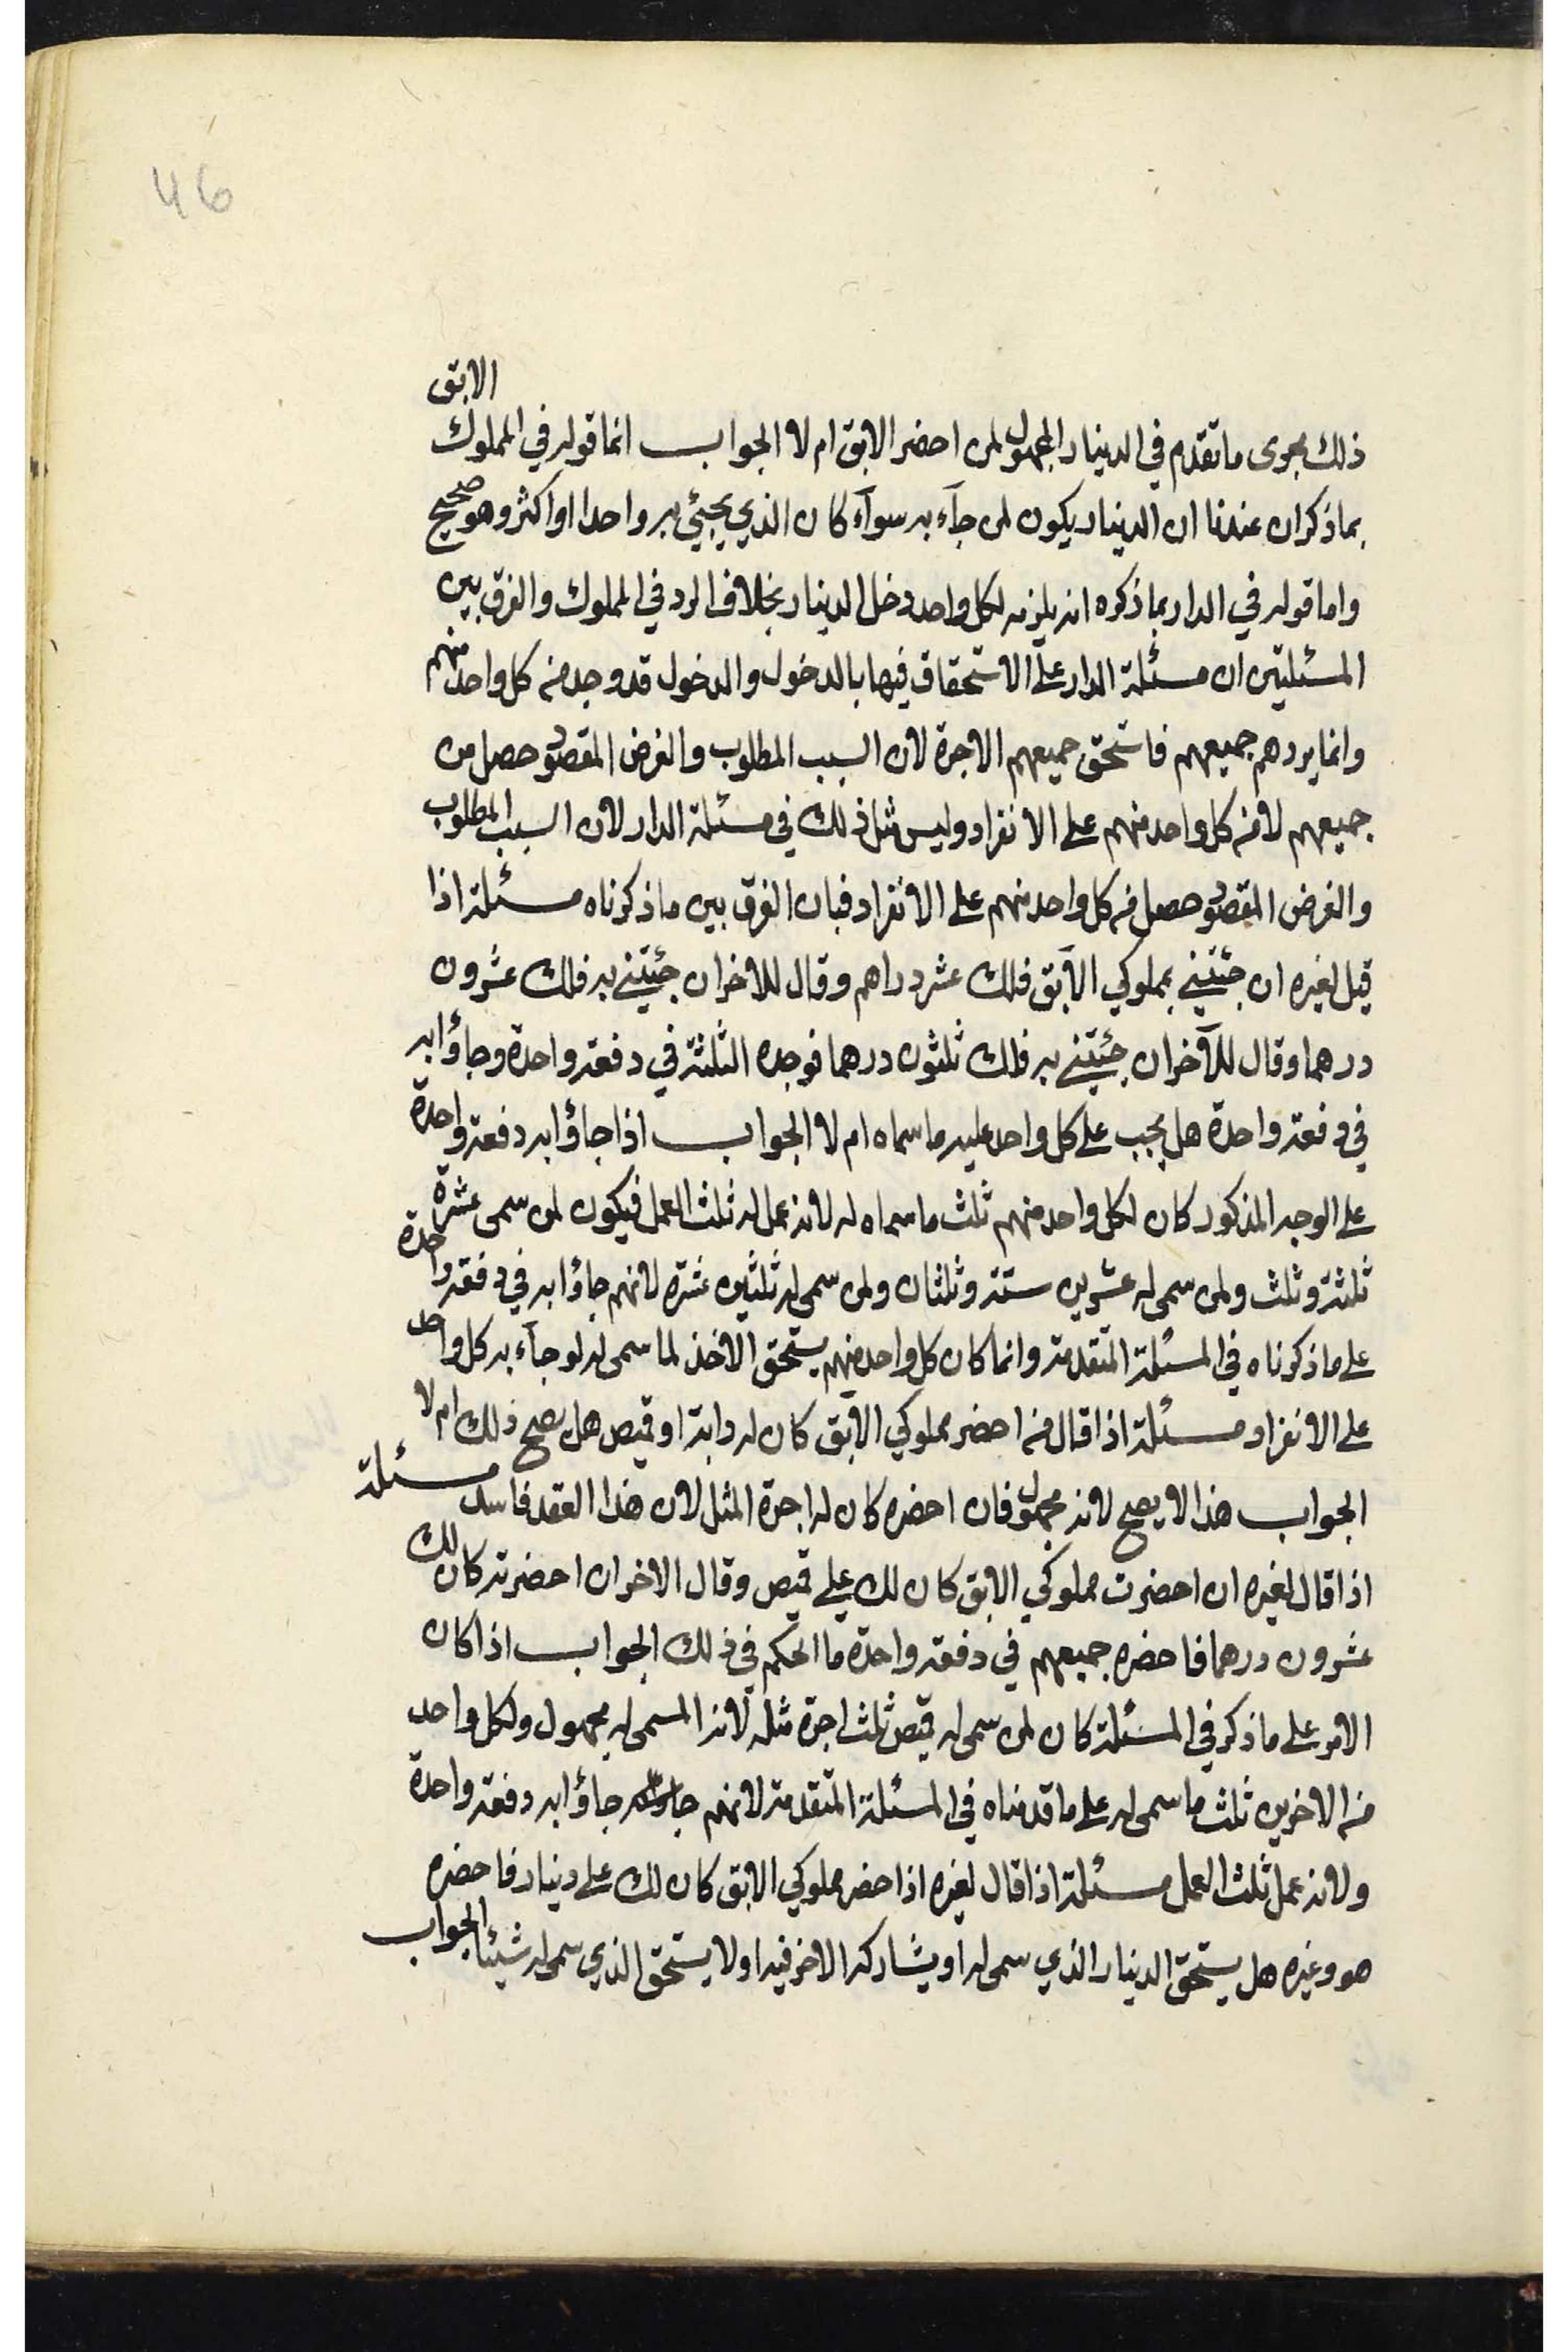 46
الابق
ذلك مجرى ما تقدم في الدينار المجهول لمن احضر الابق ام لا الجواب انما قوله في المملوك
بما ذكر ان عندنا ان الدينار يكون لمن جآء به سوآء كان الذي يجيئ به واحدا او اكثر وهو صحيح
واما قوله في الدار بما ذكره انه يلزمه لكل واحد دخل الدينار بخلاف الرد في المملوك والفرق بين
المسئلتين ان مسئلة الدار على الاستحقاق فيها بالدخول والدخول قد وجد من كل واحد منهم
وانما يردهم جميعهم فاستحق جميعهم الاجرة لان السبب المطلوب والغرض المقصود حصل من
جميعهم لا من كل واحد منهم على الانفراد وليس مثل ذلك في مسئلة الدار لان السبب المطلوب
والغرض المقصود حصل من كل واحد منهم على الانفراد فبان الفرق بين ما ذكرناه مسئلة اذا
قيل لغيره ان جئتني بمملوكي الآبق فلك عشر دراهم وقال للاخر ان جئتني به فلك عشرون
درهما وقال للآخر ان جئتني به فلك ثلثون درهما فوجده الثلثة في دفعة واحدة وجاؤا به
في دفعة واحدة هل يجب على كل واحد عليه ما سماه ام لا الجواب اذا جاؤا به دفعة واحدة
على الوجه المذكور كان لكل واحد منهم ثلث ما سماه له لانه عمل له ثلث العمل فيكون لمن سمى عشرة
ثلثة وثلث ولمن سمى له عشرين ستة وثلثان ولمن سمى له ثلثين عشرة لانهم جاؤا به في دفعة واحدة
على ما ذكرناه في المسئلة المتقدمة وانما كان كل واحد منهم يستحق الاخذ لما سمى له لو جآء به كل واحد
على الانفراد مسئلة اذا قال من احضر مملوكي الآبق كان له دابة او قميص هل يصح ذلك ام لا
الجواب هذا لا يصح لانه مجهول فان احضره كان له اجرة المثل لان هذا العقد فاسد مسئلة
اذا قال لغيره ان احضرت مملوكي الابق كان لك علي قميص وقال الاخر ان احضرته كان لك
عشرون درهما فاحضره جميعهم في دفعة واحدة ما الحكم في ذلك الجواب اذا كان
الامر على ما ذكر في المسئلة كان لمن سمى له قميص ثلث اجرة مثله لان المسمى له مجهول ولكل واحد
من الاخرين ثلث ما سمى له على ما قدمناه في المسئلة المتقدمة لانهم جاؤا به دفعة واحدة
ولانه عمل ثلث العمل مسئلة اذا قال لغيره اذا حضر مملوكي الابق كان لك علي دينار فاحضره
هو وغيره هل يستحق الدينار الذي سمى له او يشاركه الاخر فيه او لا يستحق الذي سمى له شيئا الجواب